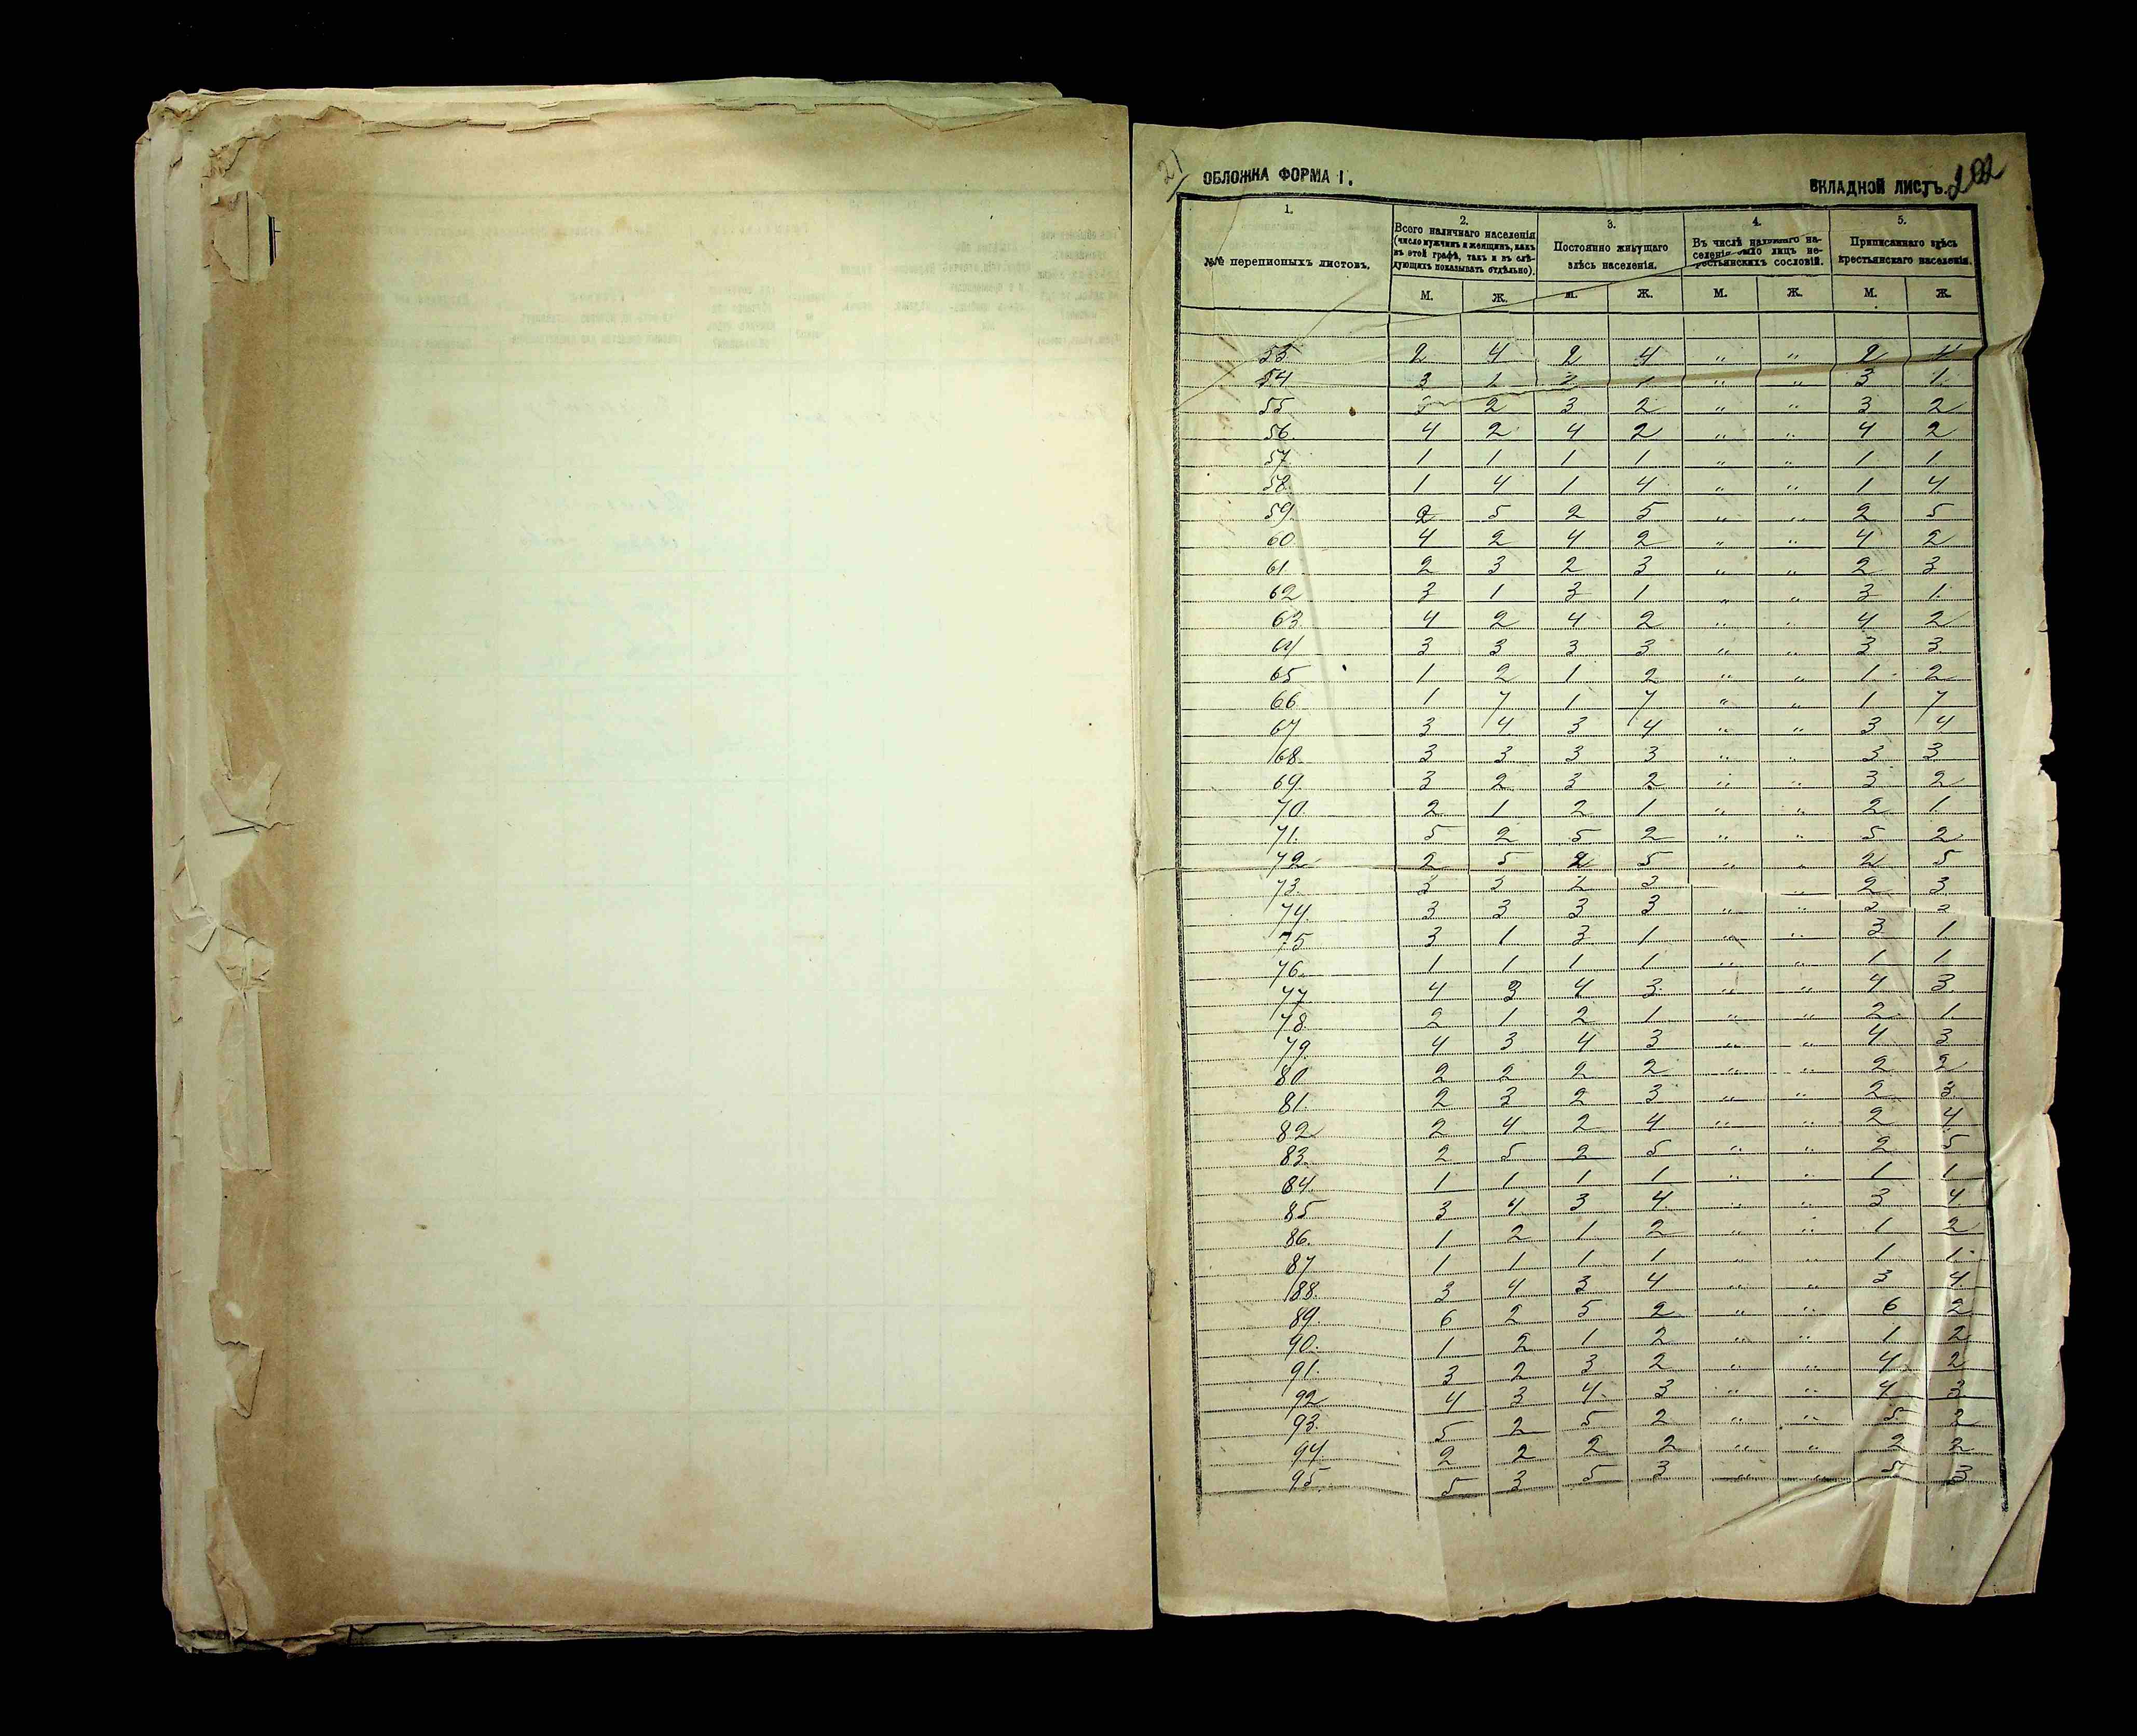 ОБЛОЖКА ФОРМА I.
ВКЛАДНОЙ ЛИСТЪ.
1. 2. 3. 4. 5.
№№ переписныхъ листовъ.
Всего наличнаго населенія (число мужчинъ и женщинъ, какъ въ этой графѣ, такъ и въ слѣдующихъ показывать отдѣльно).
Постоянно живущаго здѣсь населенія.
Въ числѣ наличнаго населенія было лицъ некрестьянскихъ сословій.
Приписаннаго здѣсь крестьянскаго населенія.
М. Ж. М. Ж. М. Ж. М. Ж.
53 2 4 2 4 „ „ 2 4
54 3 1 3 1 „ „ 3 1
55 3 2 3 2 „ „ 3 2
56 4 2 4 2 „ „ 4 2
57 1 1 1 1 „ „ 1 1
58 1 4 1 4 „ „ 1 4
59 2 5 2 5 „ „ 2 5
60 4 2 4 2 „ „ 4 2
61 2 3 2 3 „ „ 2 3
62 3 1 3 1 „ „ 3 1
63 4 2 4 2 „ „ 4 2
64 3 3 3 3 „ „ 3 3
65 1 2 1 2 „ „ 1 2
66 1 7 1 7 „ „ 1 7
67 3 4 3 4 „ „ 3 4
68 3 3 3 3 „ „ 3 3
69 3 2 3 2 „ „ 3 2
70 2 1 2 1 „ „ 2 1
71 5 2 5 2 „ „ 5 2
72 2 5 2 5 „ „ 2 5
73 3 3 2 3 „ 2 3
74 3 3 3 3 „ „ 3 3
75 3 1 3 1 „ „ 3 1
76 1 1 1 1 „ „ 1 1
77 4 3 4 3 „ „ 4 3
78 2 1 2 1 „ „ 2 1
79 4 3 4 3 „ „ 4 3
80 2 2 2 2 „ „ 2 2
81 2 3 2 3 „ „ 2 3
82 2 4 2 4 „ „ 2 4
83 2 5 2 5 „ „ 2 5
84 1 1 1 1 „ „ 1 1
85 3 4 3 4 „ „ 3 4
86 1 2 1 2 „ „ 1 2
87 1 1 1 1 „ „ 1 1
88 3 4 3 4 „ „ 3 4
89 6 2 5 2 „ „ 6 2
90 1 2 1 2 „ „ 1 2
91 3 2 3 2 „ „ 4 2
92 4 3 4 3 „ „ 4 3
93 5 2 5 2 „ „ 5 2
94 2 2 2 2 „ „ 2 2
95 5 3 5 3 „ „ 5 3